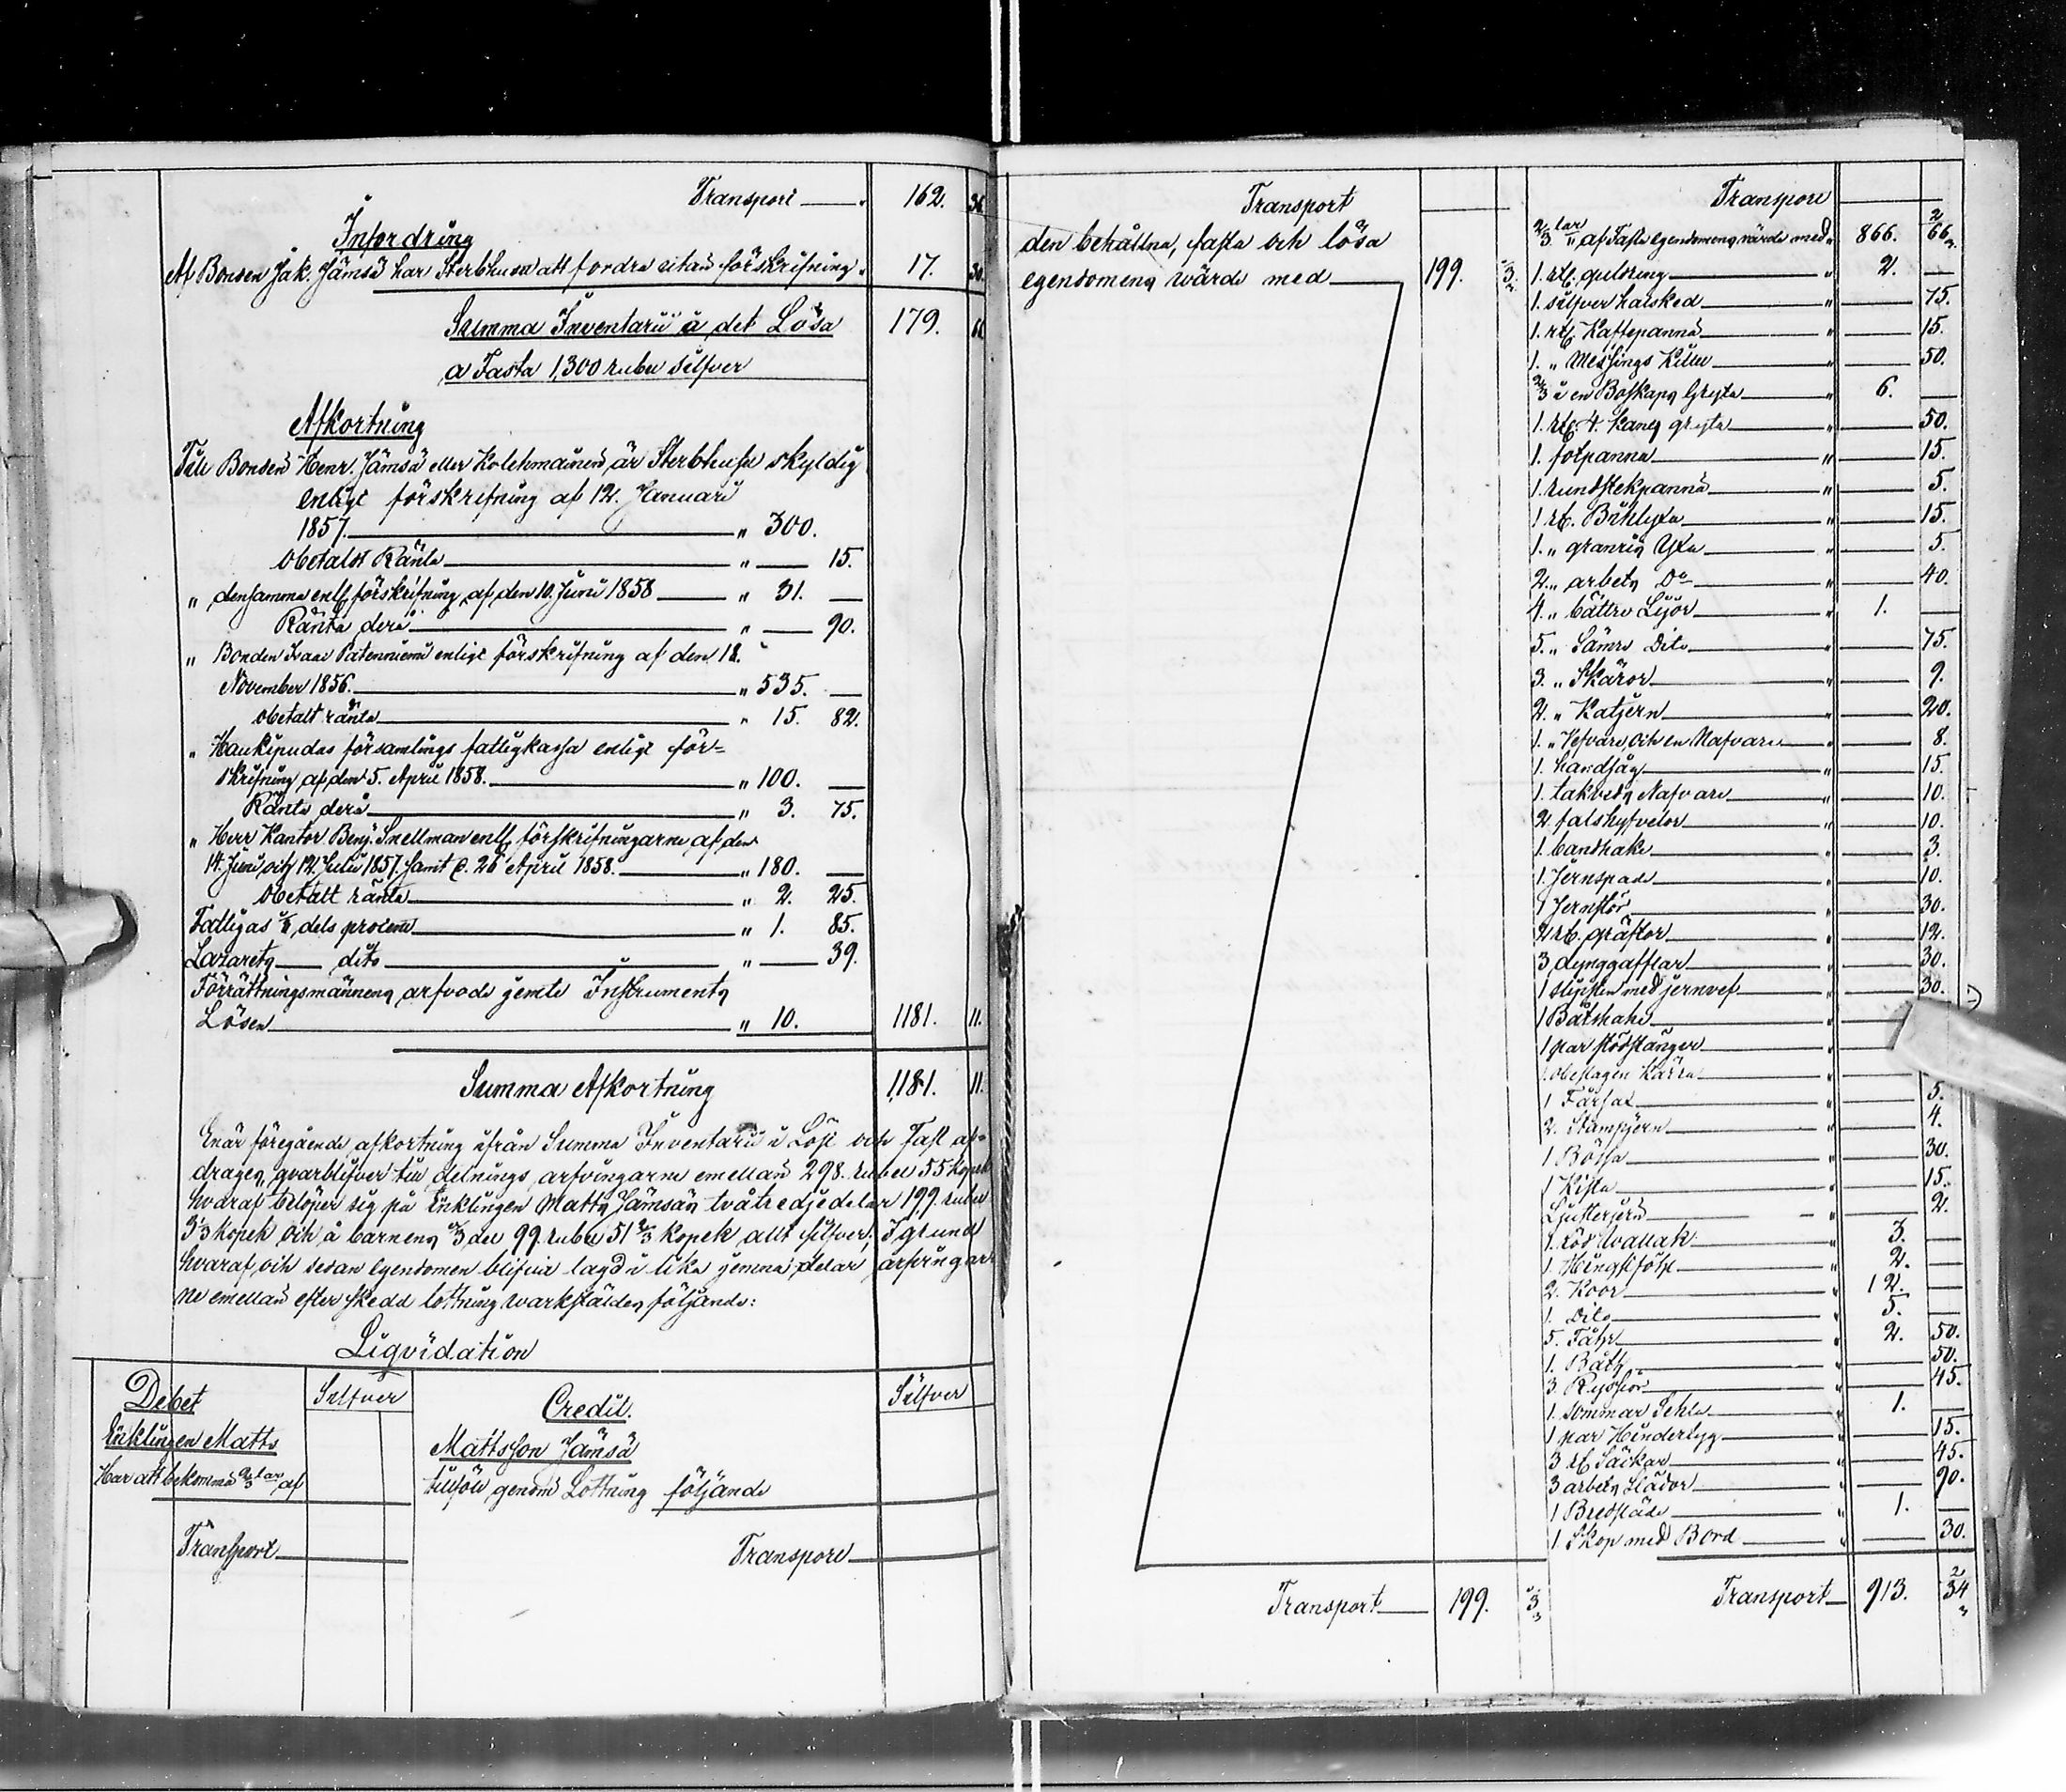 Transport 162. 36.
Infordring
Af Bonden Jak. Jämsä har Sterbhuset att fordra utan förskrifning. 17. 30.
Summa Inventarii å det Lösa 179. 66.
a Fasta 1,300 rubel silfver
Afkortning
Till Bonden Henr. Jämsä eller Kolehmainen är Sterbhuset skyldig
enligt förskrifning af 12. Januari
1857. " 300.
Obetalt Ränta " — 15.
" densamme enl. förskrifning af den 10. Juni 1858 " 31. —
Ränta derå " — 90.
" Bonden Isaac Patenniemi enligt förskrifning af den 18.
November 1856. " 535. —
Obetalt ränta " 15. 82.
" Haukipudas församlings fattigkassa enligt för=
skrifning af den 5. April 1858. " 100. —
Ränta derå " 3. 75.
" Herr Kantor Benj. Snellman enl. förskrifningarne af den
14. Juni och 12. Julii 1857. samt d. 26 April 1858. " 180. —
Obetalt ränta " 2. 25.
Fattigas dels procent " 1. 85.
Lazarets dito " — 39.
Förrättningsmännens arfvode jemte Instruments
Lösen " 10. 1181. 11.
Summa Afkortning 1,181. 11.
Enär föregående afkortning ifrån Summa Inventarii i Löst och Fast af=
drages, qvarblifver till delnings arfvingarne emellan 298. rubel 55 kopek
hvaraf belöper sig på Enklingen Matts Jämsäs två tredjedelar 199. rubel
3 1/3 kopek och å barnens 1/3 del 99. rubel 51 2/3 kopek allt silfver; I grund
hvaraf, och sedan Egendomen blifvit lagd i lika jemna delar, arfvingar=
ne emellan efter skedd lottning verkställdes följande:
Liqvidation
Debet Silfver Credit. Silfver
Enklingen Matts Mattsson Jämsä
Har att bekomma 2/3 lar af tillföll genom Lottning följande
Transport Transport
Transport
den behållna, fasta och lösa
egendomens wärde med 199. 3 1/3
Transport 199. 3 1/3
Transport
2/3 lar af Fasta egendomens wärde med " 866. 66 2/3
1. st. guldring " 2. —
1. silfver halsked " — 75.
1. st. Kaffepanna " — 15.
1. " Messings Kittel " — 50.
2/3 i en Boskaps Gryta " 6. —
1. st. 4. kanns gryta " — 50.
1. fotpanna " — 15.
1. rundstekpanna " — 5.
1 st. Bilyxa " — 15.
1. " granris Yxa " — 5.
2. " arbets Do " — 40.
4. " bättre Lijor " 1. —
5. " Sämre Dito " — 75.
3. " Skäror " — 9.
2. " Katjern " — 20.
1. " Vefvare och en Nafvare " — 8.
1. handsåg " — 15.
1. takveds Nafvare " — 10.
2. falshyfvelor " — 10.
1. bandhake " — 3.
1. Jernspade " — 10.
1 Jernstör " — 30.
2 st. gräftor " — 12.
3 dynggafflar " — 30.
1 slipsten med jernvef " — 30.
1 Båtshake " —
1 par stödstänger " —
1. obeslagen Kärra " —
1 Färsax " — 5.
2. Stämpjern " — 4.
1 Bössa " — 30.
1 Kista " — 15.
Ljusterjern " — 2.
1. röd Wallak " 3. —
1. Hingstföhl " 2. —
2. Koor " 12. —
1. Dito " 5. —
5. Fåhr " 2. 50.
1. Båth " — 50.
3. Ryssior " — 45.
1. sommar Sehla " 1. —
1 par Hindertyg " — 15.
3 st. Säckar " — 45.
3 arbets Slädor " — 90.
1 Bredsläde " 1. —
1 Skåp med Bord " — 30.
Transport 913. 34 2/3